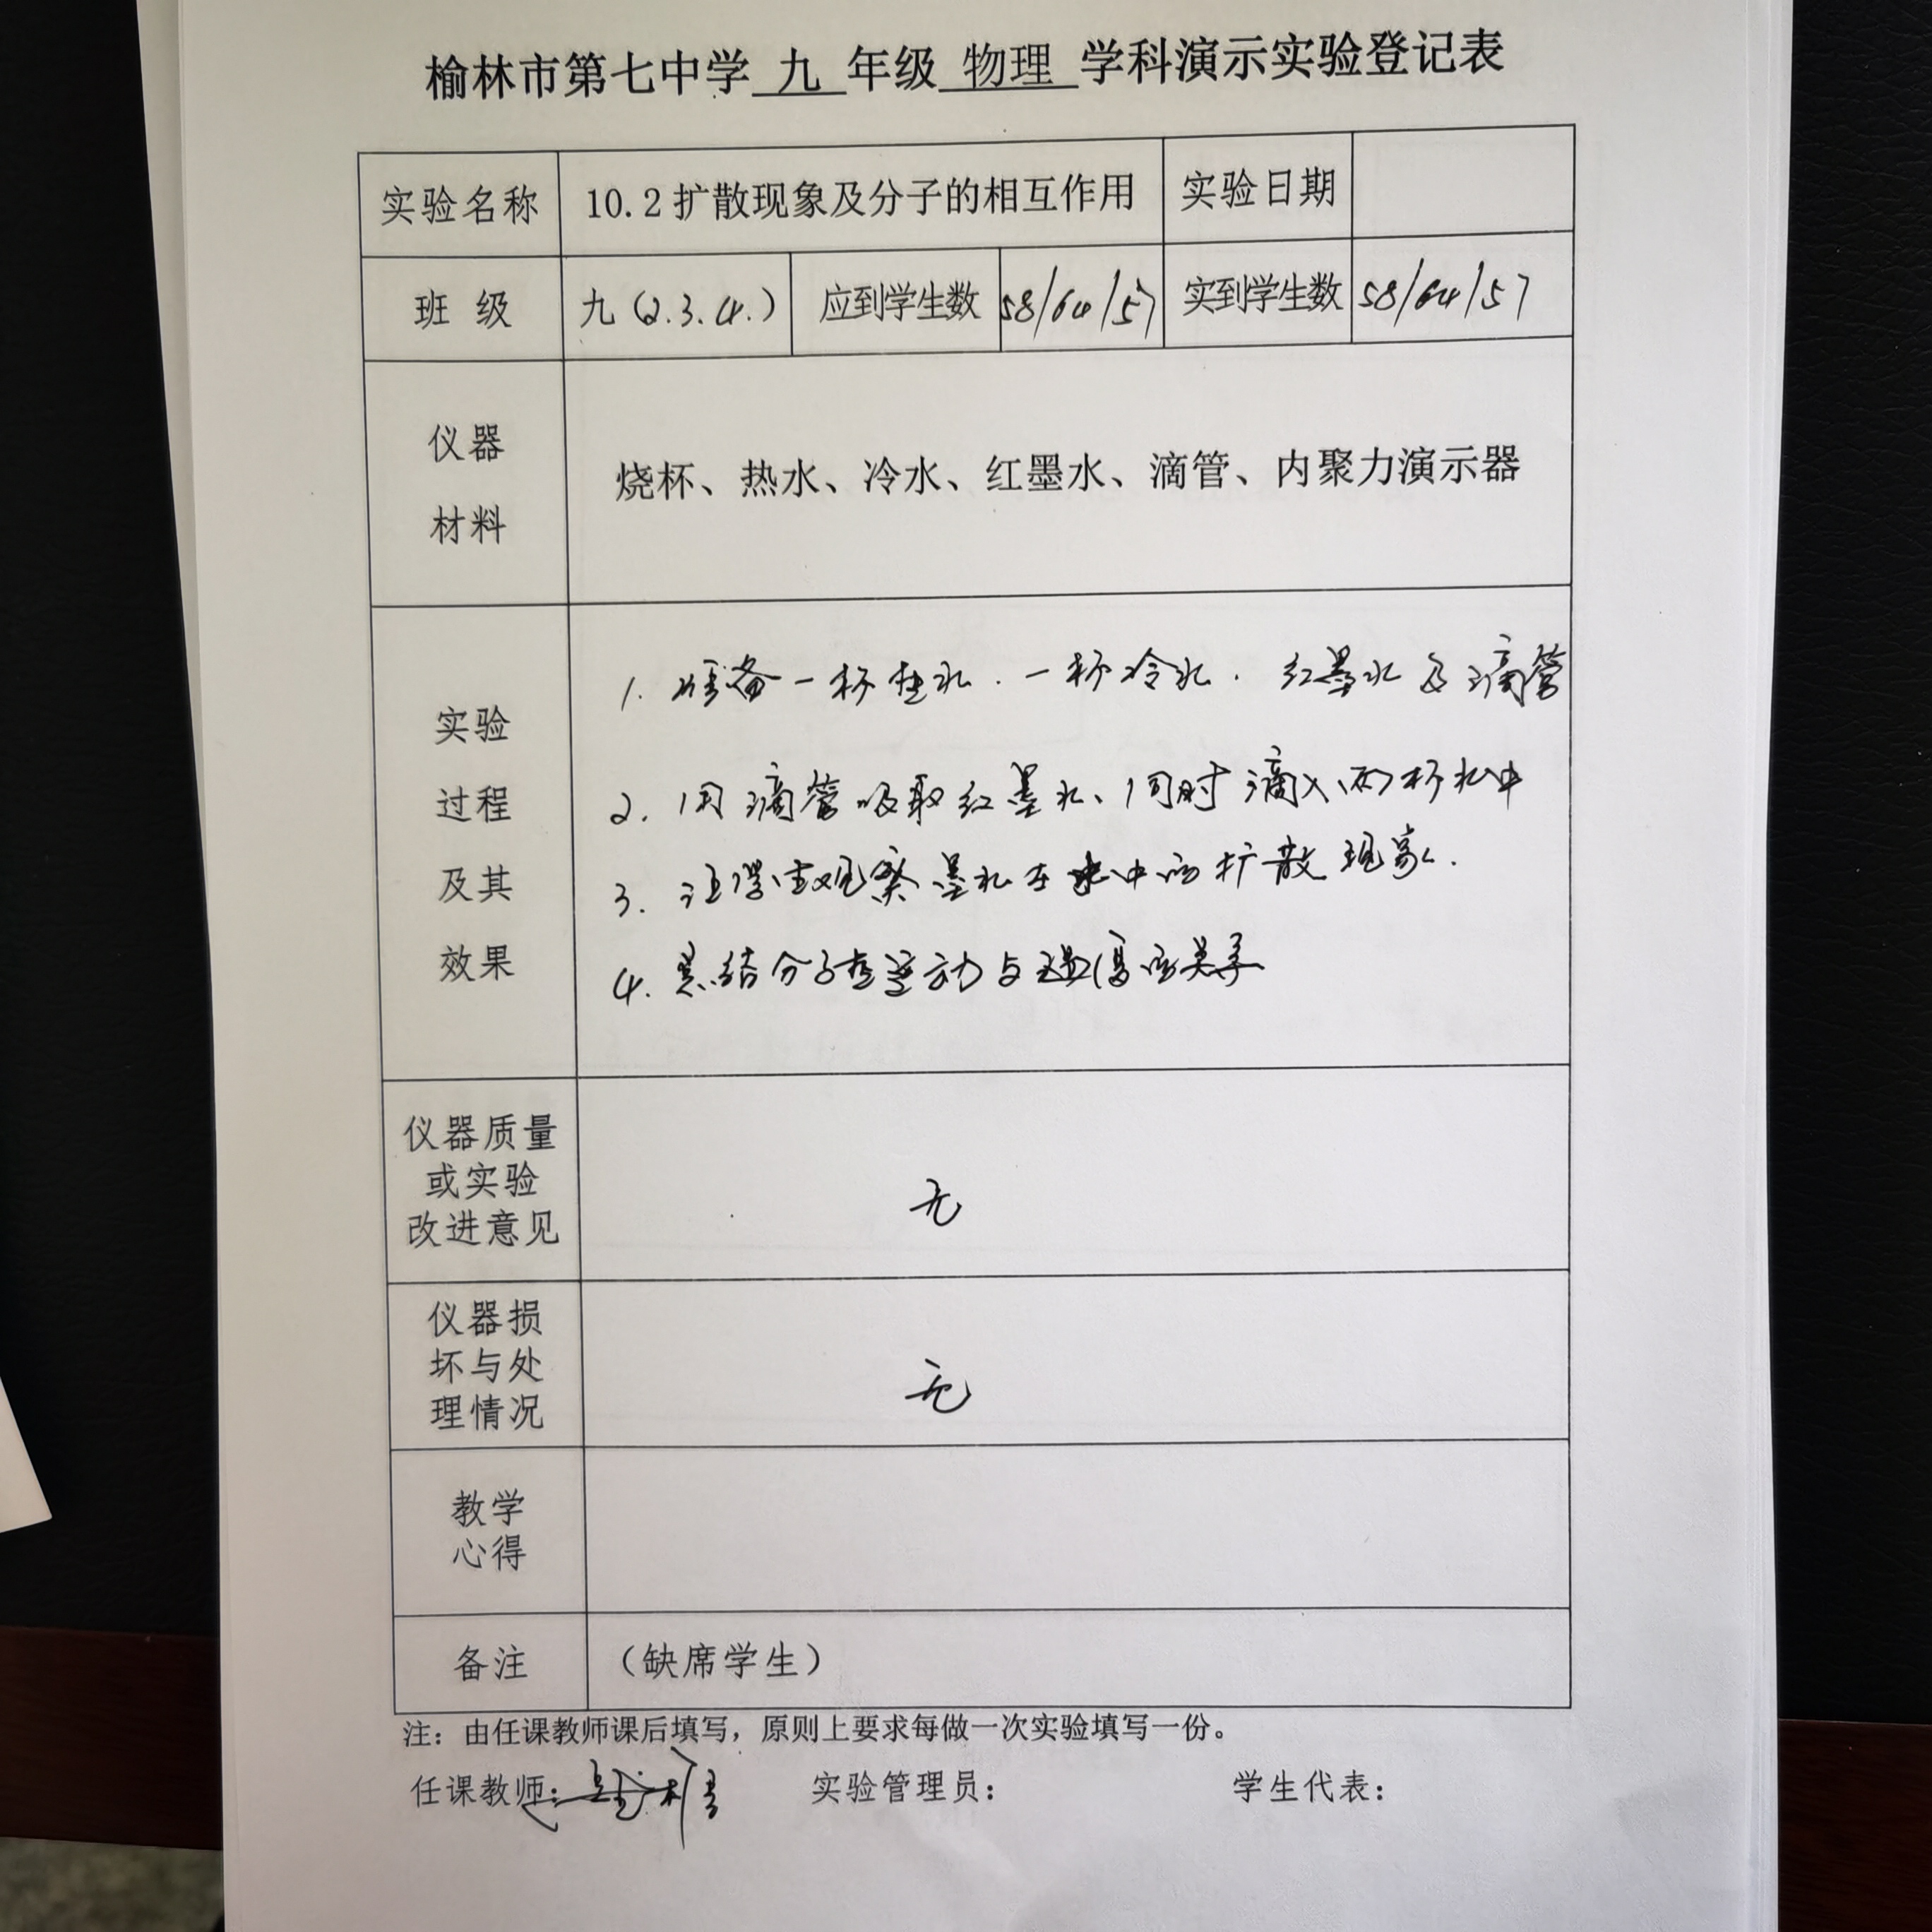 榆林市第七中学 九 年级 物理 学科演示实验登记表
实验名称 10.2扩散现象及分子的相互作用 实验日期
班 级 九(2.3.4.) 应到学生数 58/64/57 实到学生数 58/64/57
仪器
材料
烧杯、热水、冷水、红墨水、滴管、内聚力演示器
实验
过程
及其
效果
1. 准备一杯热水.一杯冷水.红墨水及滴管
2. 用滴管吸取红墨水、同时滴入两杯水中
3. 让学生观察墨水在水中的扩散现象.
4. 总结分子热运动与温度的关系
仪器质量
或实验
改进意见
无
仪器损
坏与处
理情况
无
教学
心得
备注 (缺席学生)
注：由任课教师课后填写，原则上要求每做一次实验填写一份。
任课教师： 实验管理员： 学生代表：